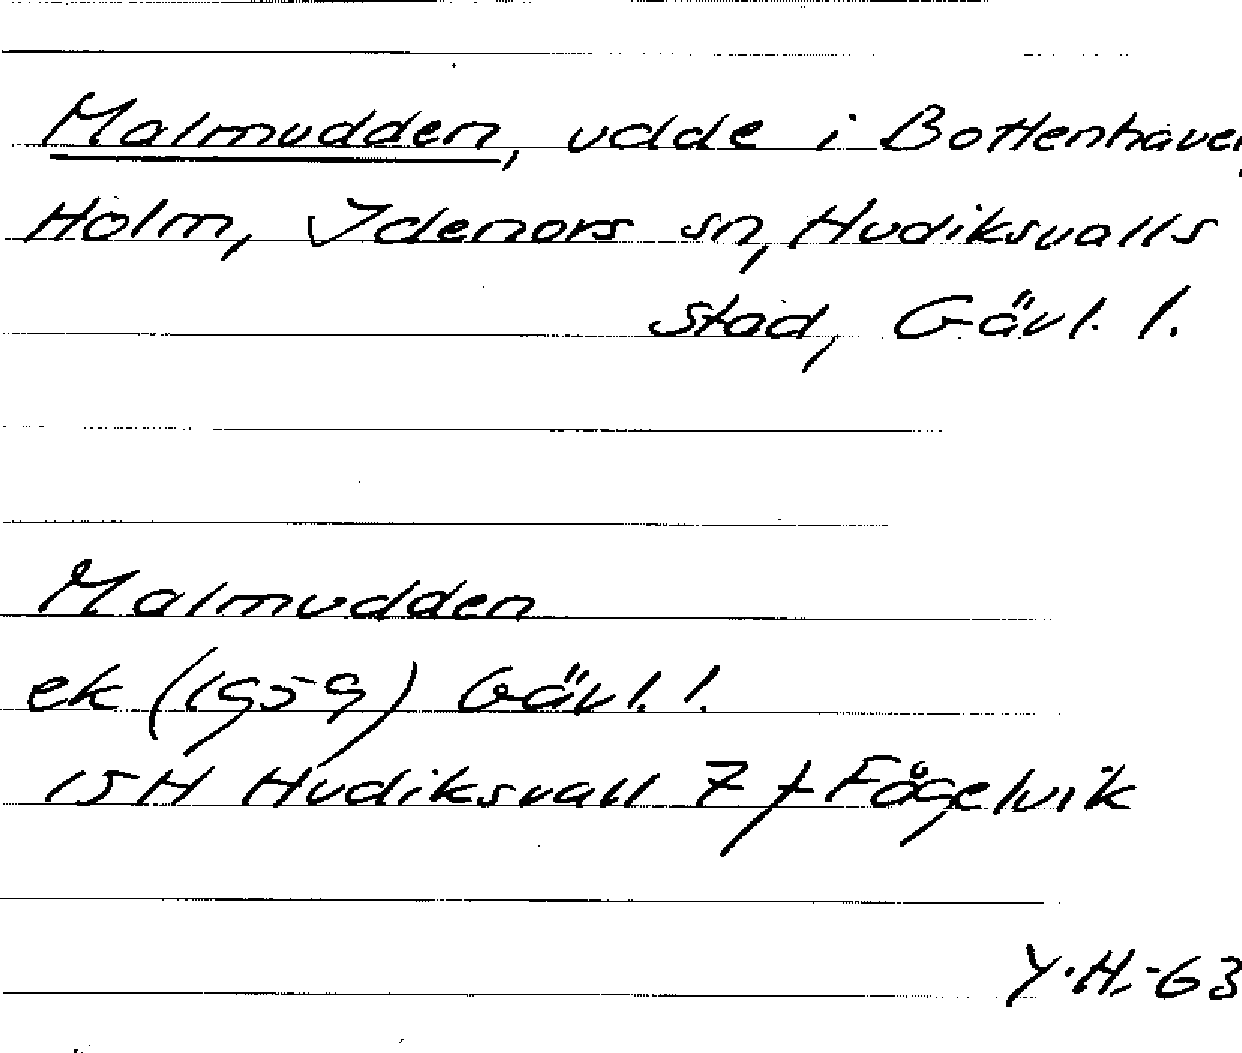 Malmudden, udde i Bottenhavet,
Holm, Idenors sn, Hudiksvalls
stad, Gävl. l.
Malmudden
ek (1959) Gävl. l.
15H Hudiksvall 7f Fågelvik
Y.H.-63